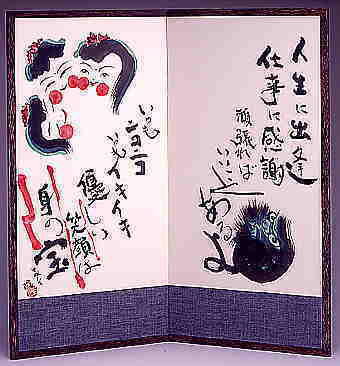 人生に出逢い
仕事に感謝
頑張れば
いいこと
あるよ
いつも
ニコニコ
いつも
イキイキ
優しい
笑顔は
身の宝